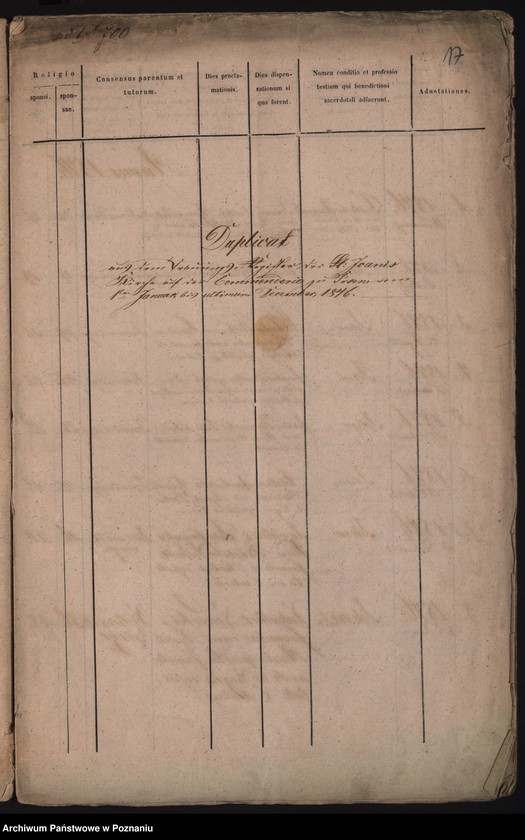 17
Religio
sponsi.
spon-
sae.
Consensus parentum et
tutorum.
Dies procla-
mationis.
Dies dispen-
sationum si
qui forent.
Nomen conditio et professio
testium qui benedictioni
sacerdotali adfuerunt.
Adnotationes.
Duplicat
aus dem Trauungs-Register der St. Joannis
Kirche auf der Commenderie zu Posen vom
1ten Januar bis ultimum Dezember 1846.
Archiwum Państwowe w Poznaniu